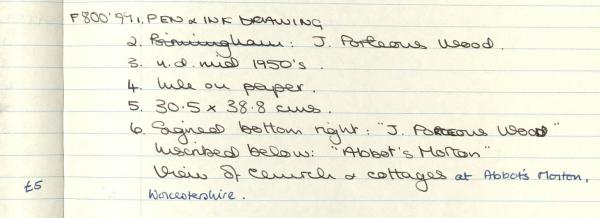 F800'91. PEN & INK DRAWING
2. Birmingham: J. Porteous Wood.
3. n.d. mid 1950's.
4. Ink on paper.
5. 30.5 x 38.8 cms.
6. Signed bottom right: "J. PORTEOUS WOOD"
Inscribed below: "Abbot's Morton"
View of church & cottages at Abbot's Morton,
£5 Worcestershire.